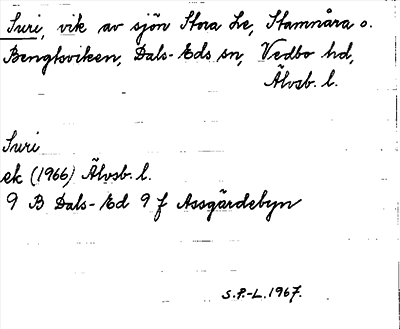 Suri, vik av sjön Stora Le, Stamnåra o.
Bengtsviken, Dals-Eds sn, Vedbo hd,
Älvsb. l.
Suri
ek (1966) Älvsb. l.
9 B Dals-Ed 9 f Assgärdebyn
S.P.-L. 1967.